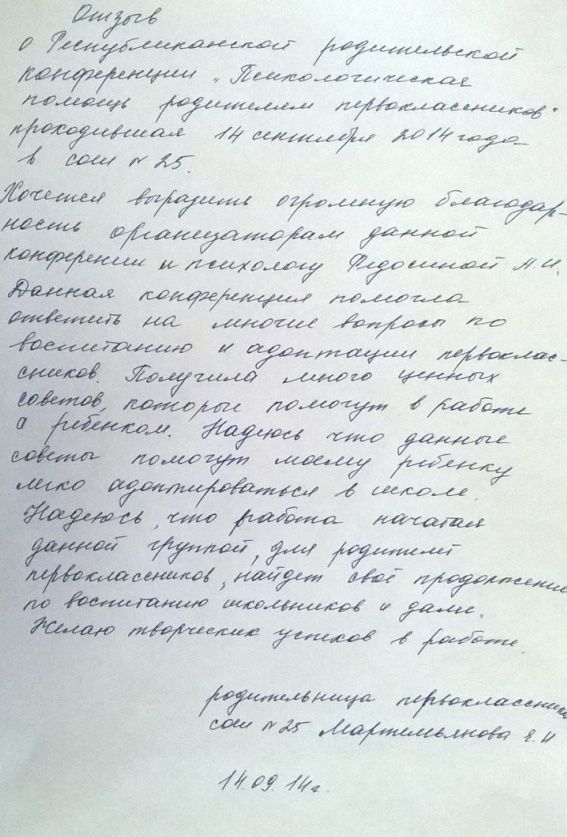 Отзыв
о Республиканской родительской
конференции „Психологическая
помощь родителям первоклассников"
проходившая 14 сентября 2014 года
в сош № 25.
Хочется выразить огромную благодар-
ность организаторам данной
конференции и психологу Федосиной А.И.
Данная конференция помогла
ответить на многие вопросы по
воспитанию и адоптации первоклас-
сников. Получила много ценных
советов, которые помогут в работе
с ребёнком. Надеюсь что данные
советы помогут моему ребенку
легко адоптироваться в школе.
Надеюсь, что работа начатая
данной группой, для родителей
первоклассников, найдет своё продолжение
по воспитанию школьников и дали.
Желаю творческих успехов в работе.
родительница первоклассника
сош № 25 Мартемьянова Е.Н
14.09.14г.